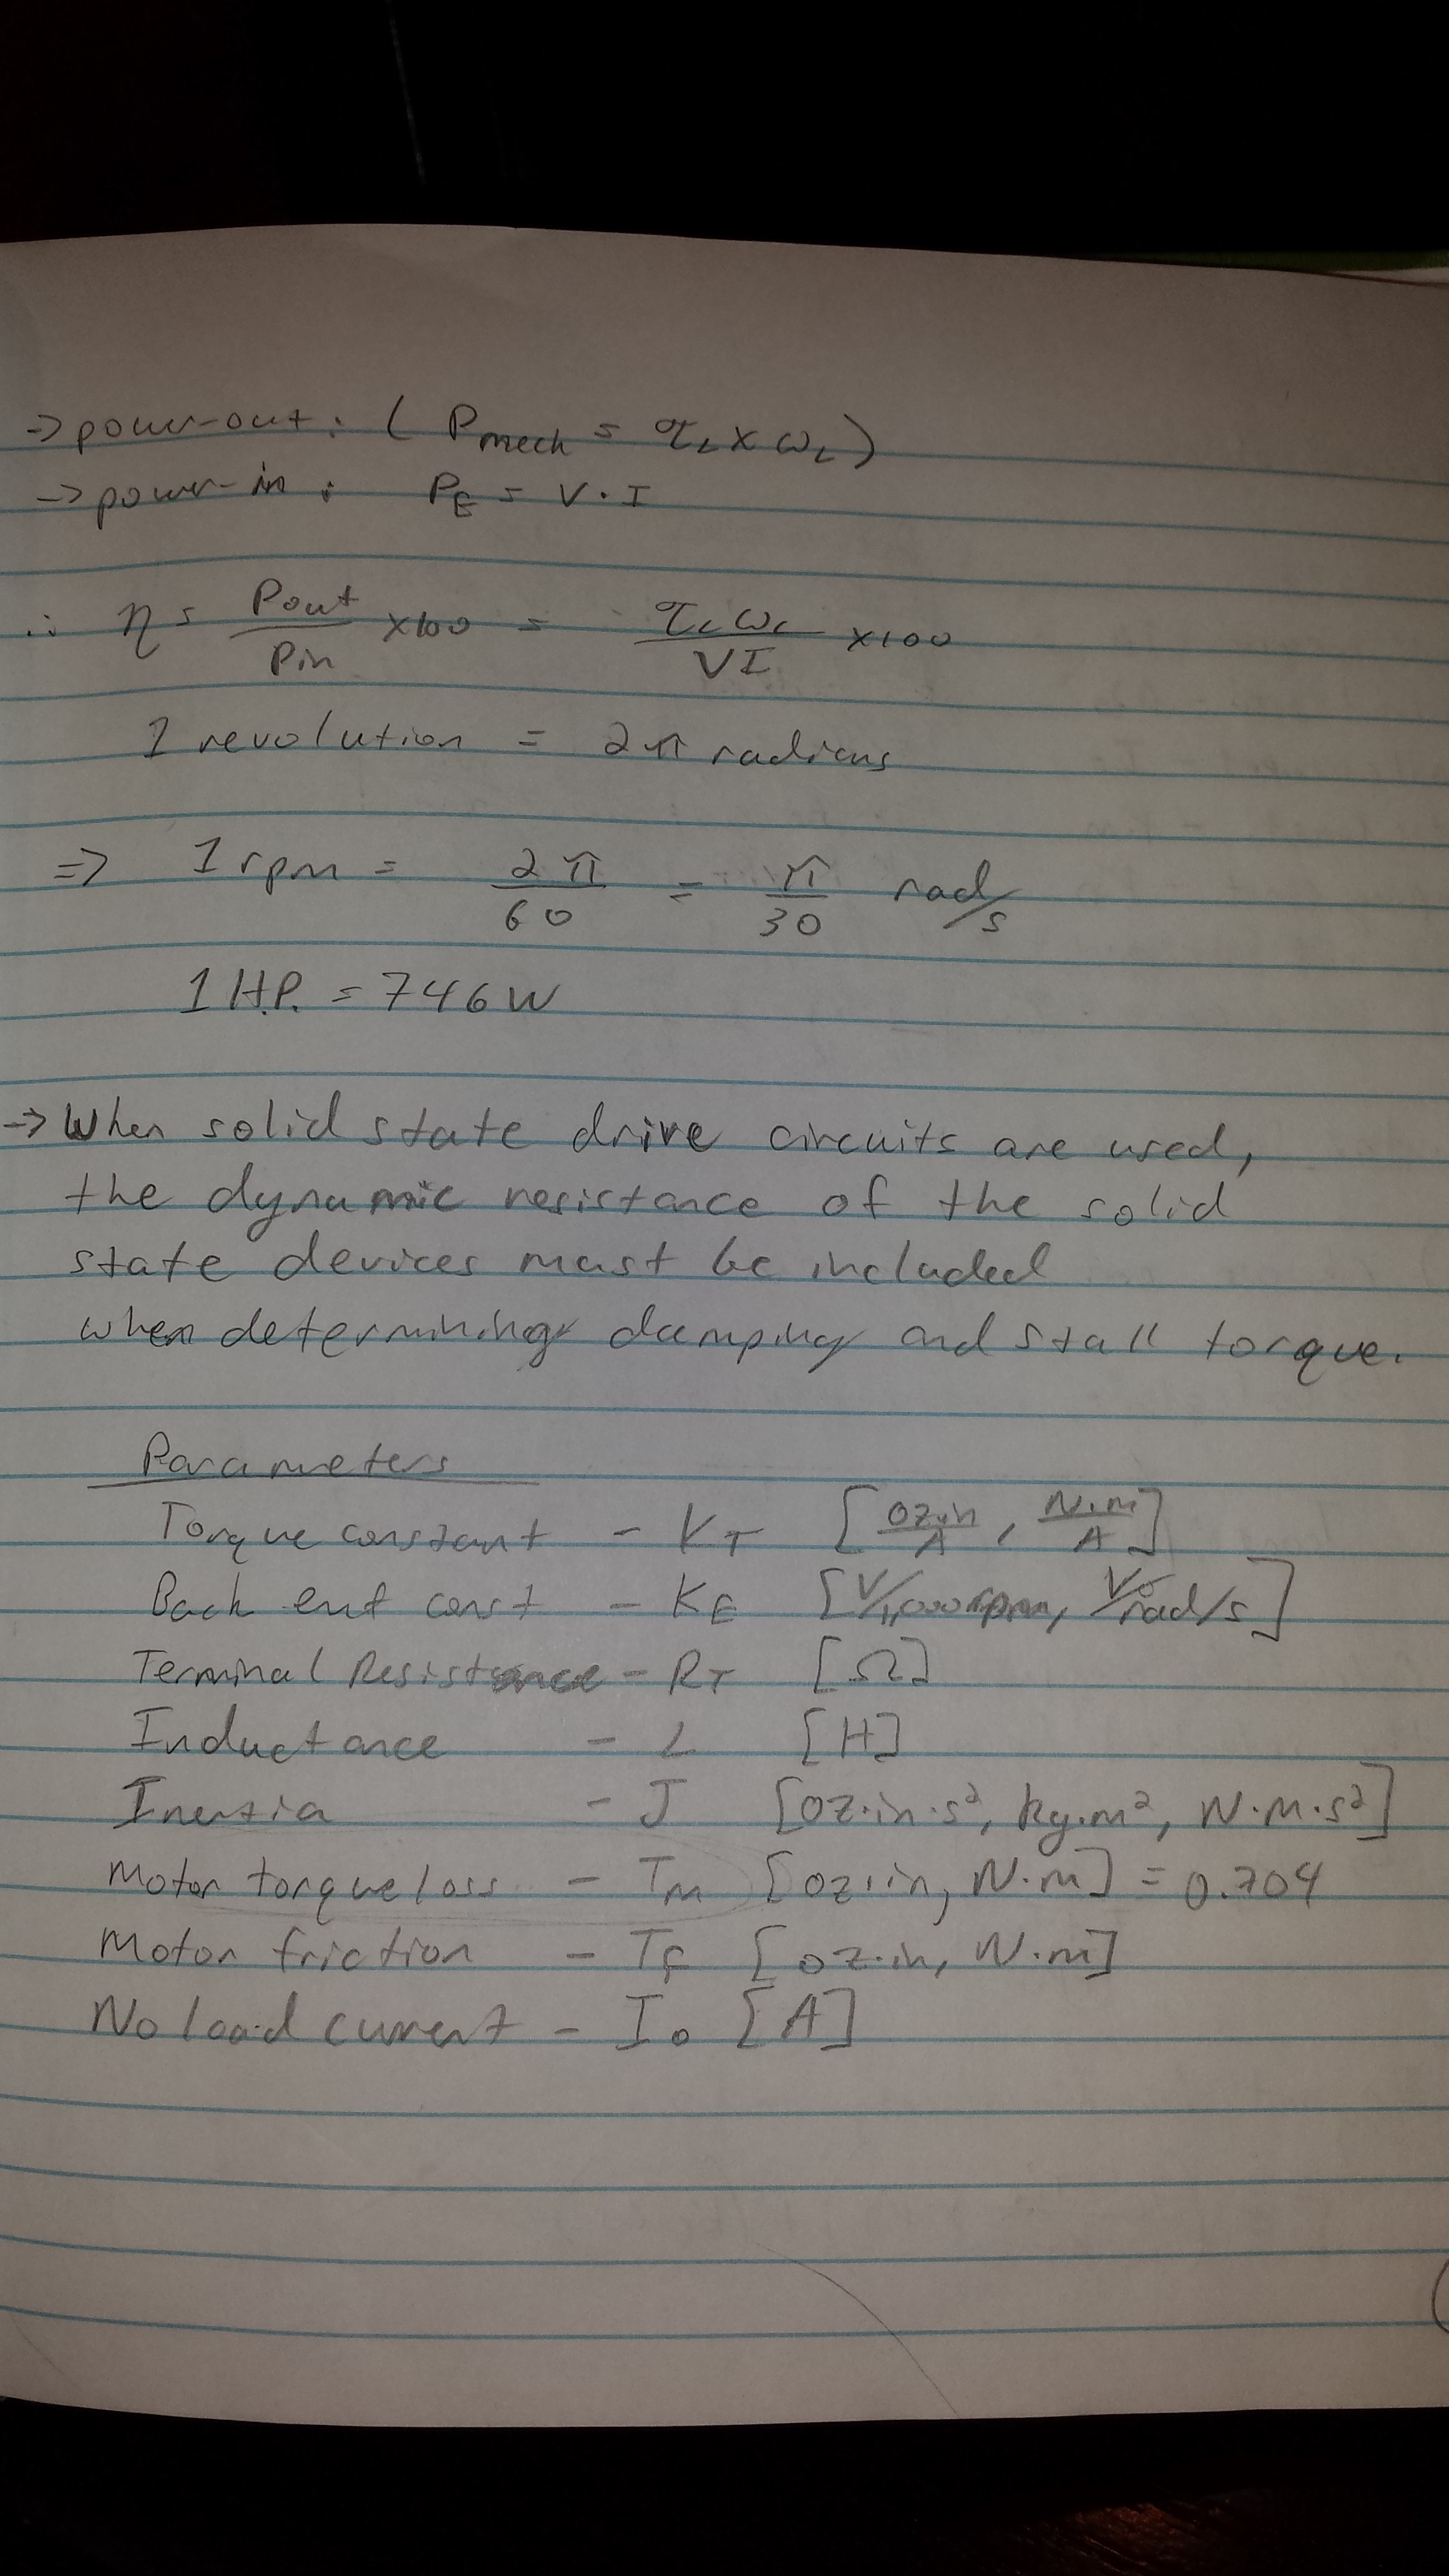 ⇒ power-out: ( Pmech = τL x ωL )
→ power-in: PE = V · I
∴ η = Pout/Pin x100 = τLωL/VI x100
1 revolution = 2π radians
⇒ 1 rpm = 2π/60 = π/30 rad/s
1 H.P. = 746 W
→ When solid state drive circuits are used,
the dynamic resistance of the solid
state devices must be included
when determining damping and stall torque.
Parameters
Torque constant - KT [oz·in/A, N·m/A]
Back emf const - KE [V/1,000rpm, V/rad/s]
Terminal Resistance - RT [Ω]
Inductance - L [H]
Inertia - J [oz·in·s², kg·m², N·m·s²]
Motor torque loss - TM [oz·in, N·m] = 0.704
Motor friction - TF [oz·in, N·m]
No load current - Io [A]